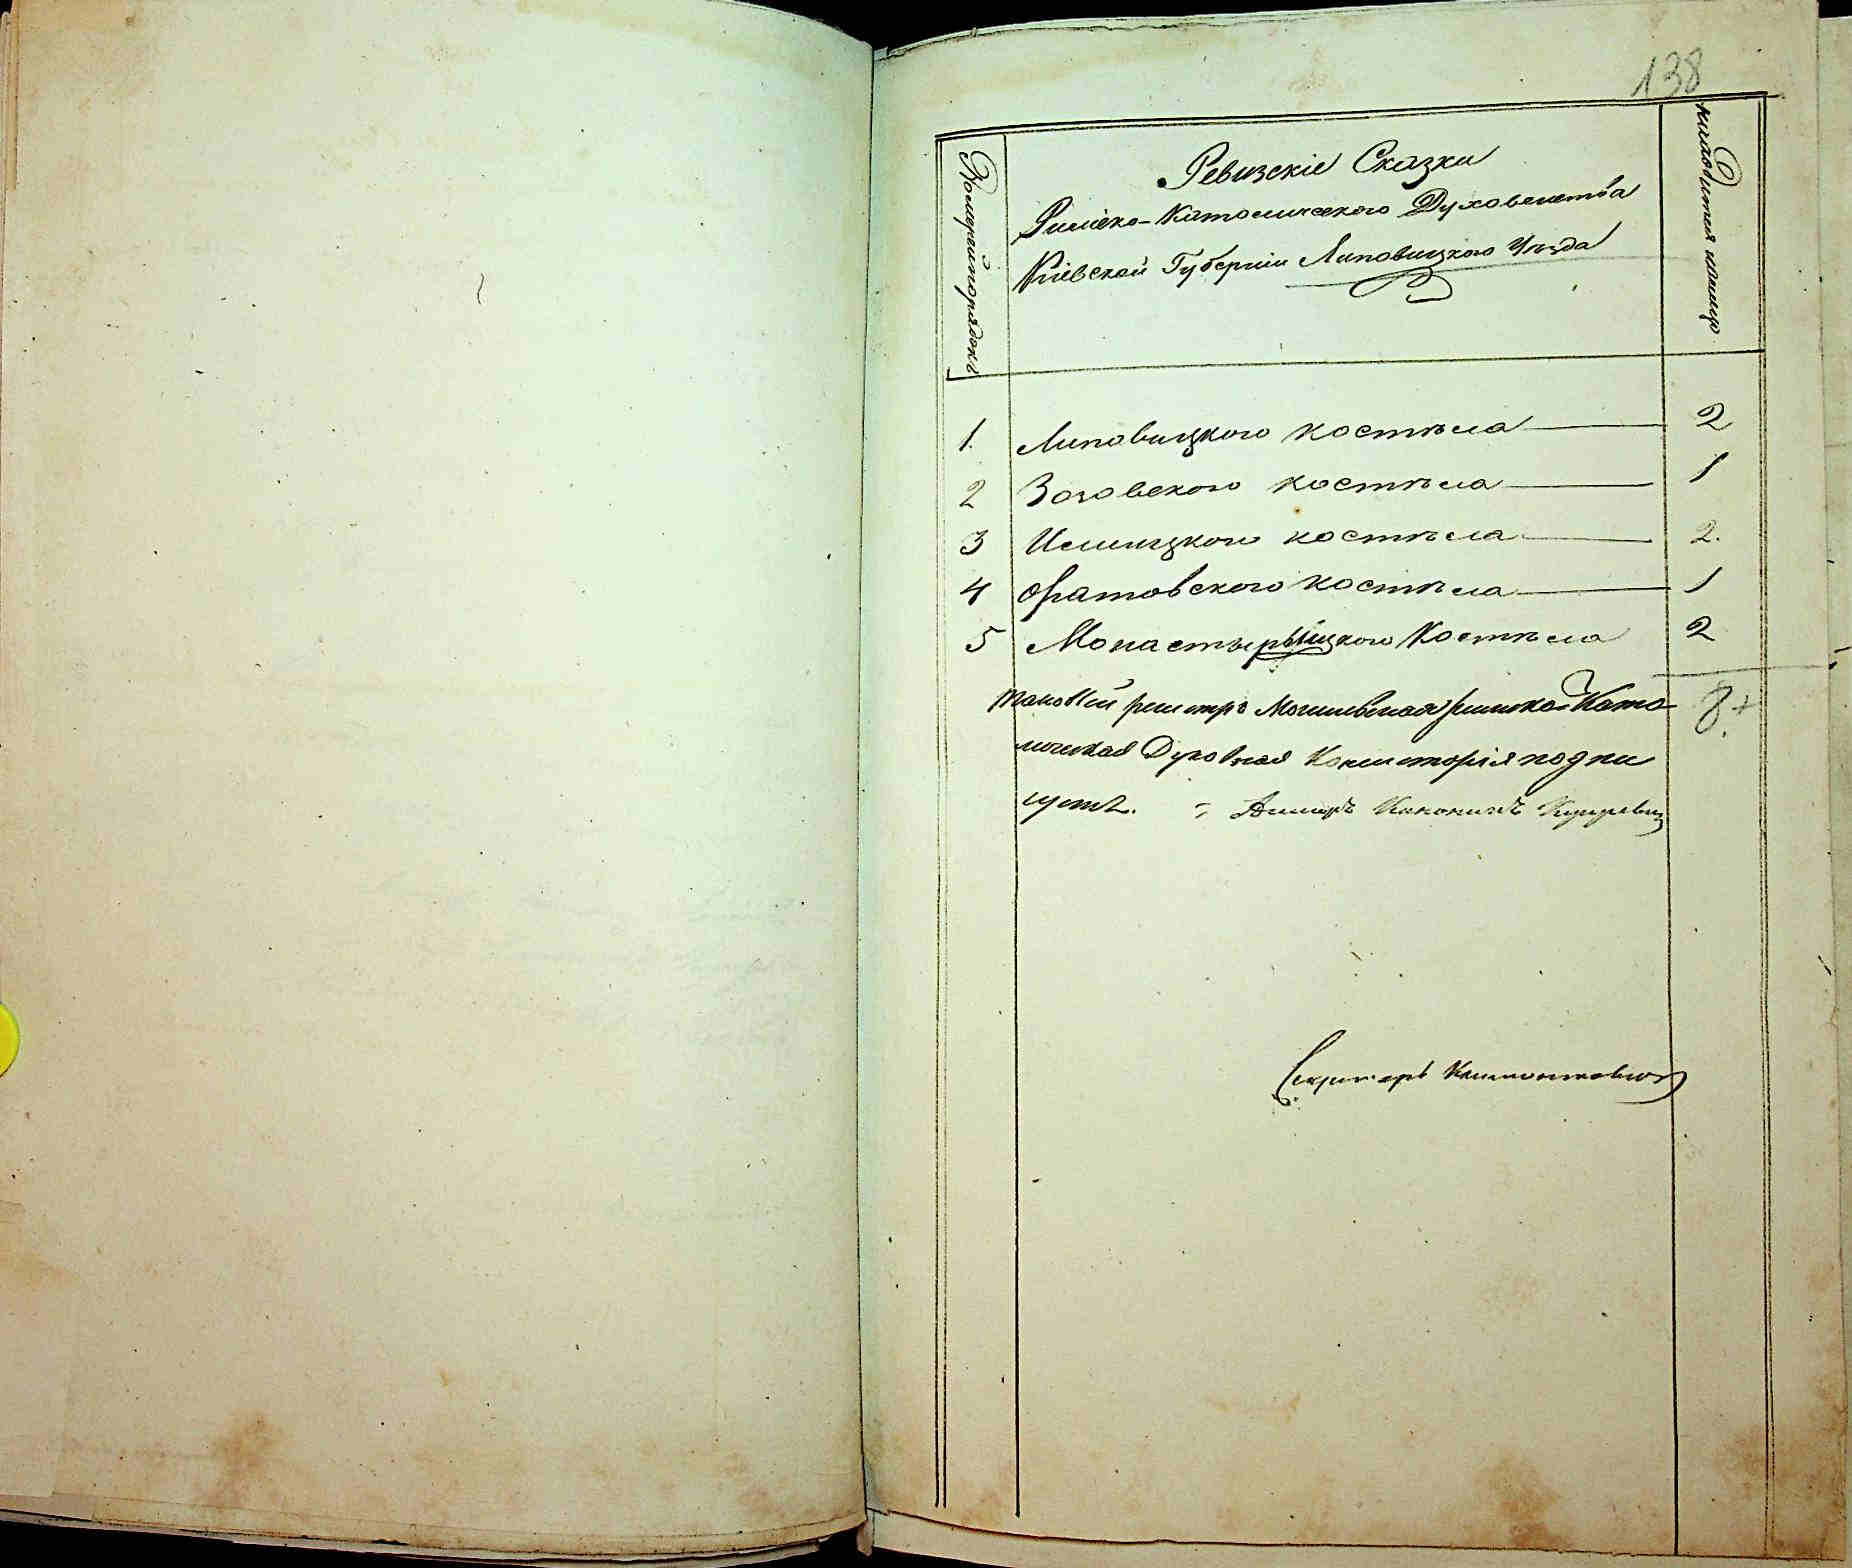 138
Номерный порядокъ
Ревизскіе Сказки
Римско-Католического Духовенства
Кіевской Губерніи Липовицкого Уѣзда
находится
1. Липовицкого костѣла 2
2 Зозовского костѣла 1
3 Илинцкого костѣла 2.
4 Оратовского костѣла 1
5 Монастырыщкого Костѣла 2
таковый реистръ Могилевская римско-Като- 8
лическая Духовная Консисторія подпи
суетъ. Асесоръ Каноникъ
Секретарь